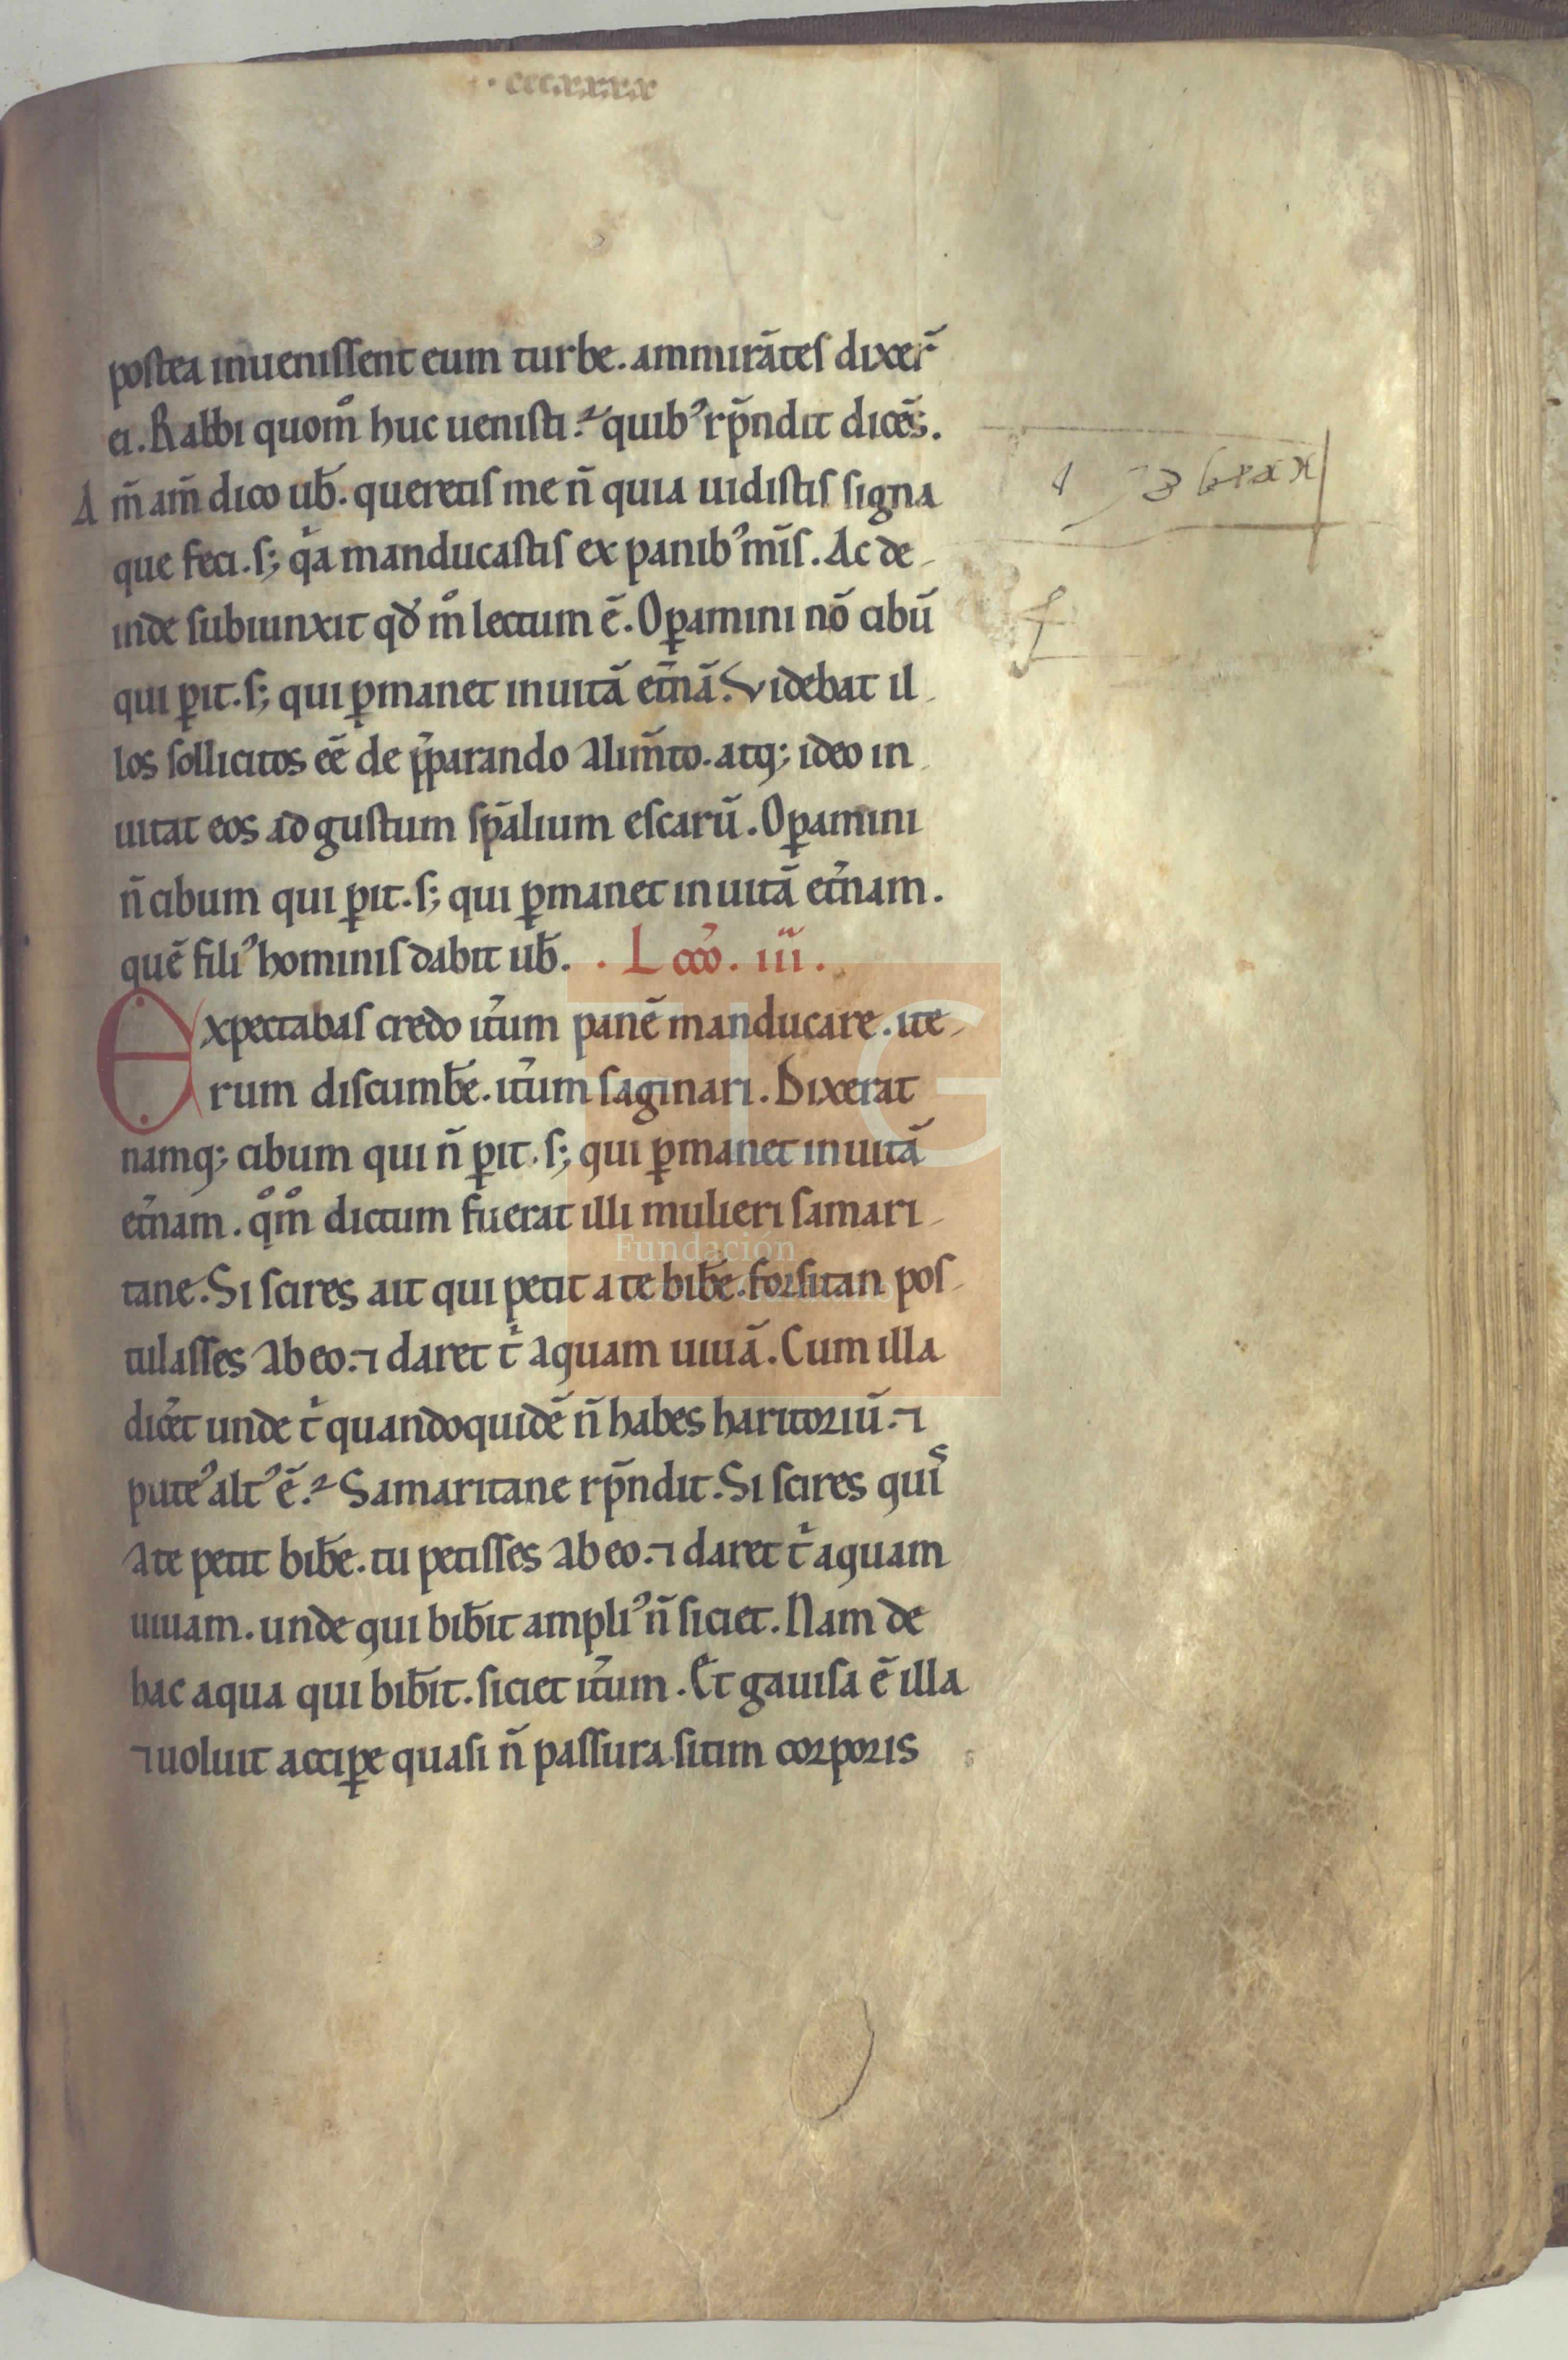 · cccxxxx
postea inuenissent eum turbe. ammirãtes dixer̃
ei. Rabbi quom̊ huc uenisti? quibꝰ rp̃ndit dicẽs.
Am̃ am̃ dico ub̃. queretis me ñ quia uidistis signa
que feci. s; qͥa manducastis ex panibꝰ mĩs. Ac de
inde subiunxit qđ m̊ lectum ẽ. Oꝑamini nõ cibũ
qui ꝑit. s; qui ꝑmanet in uitã et̃nã. Videbat il
los sollicitos eẽ de p̃parando alim̃to. atq; ideo in
uitat eos ad gustum sp̃alium escarũ. Oꝑamini
ñ cibum qui ꝑit. s; qui ꝑmanet in uitã et̃nam.
quẽ filiꝰ hominis dabit ub̃. . Lcc̃o. iii.
Expectabas credo it̃um panẽ manducare. ite
rum discumb̃e. it̃um saginari. Dixerat
namq; cibum qui ñ ꝑit. s; qui ꝑmanet in uitã
et̃nam. q̊m̊ dictum fuerat illi mulieri samari
tane. Si scires ait qui petit a te bib̃e. forsitan pos
tulasses ab eo. ⁊ daret tͥ aquam uiuã. Cum illa
dic̃et unde tͥ quandoquidẽ ñ habes haritoriũ. ⁊
puteꝰ altꝰ ẽ? Samaritane rp̃ndit. Si scires quiˢ
a te petit bib̃e. tu petisses ab eo. ⁊ daret tͥ aquam
uiuam. unde qui bib̃it ampliꝰ ñ siciet. Nam de
hac aqua qui bib̃it. siciet it̃um. Et gauisa ẽ illa
⁊ uoluit acciꝑe quasi ñ passura sitim corporis
FIG
Fundación